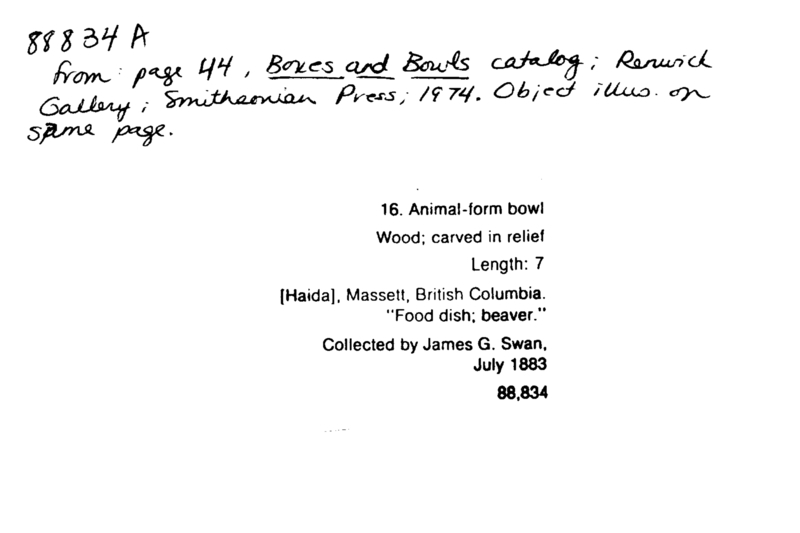 88834 A
from: page 44, Boxes and Bowls catalog; Renwick
Gallery; Smithsonian Press; 1974. Object illus. on
same page.
16. Animal-form bowl
Wood; carved in relief
Length: 7
[Haida], Massett, British Columbia.
"Food dish; beaver."
Collected by James G. Swan,
July 1883
88,834